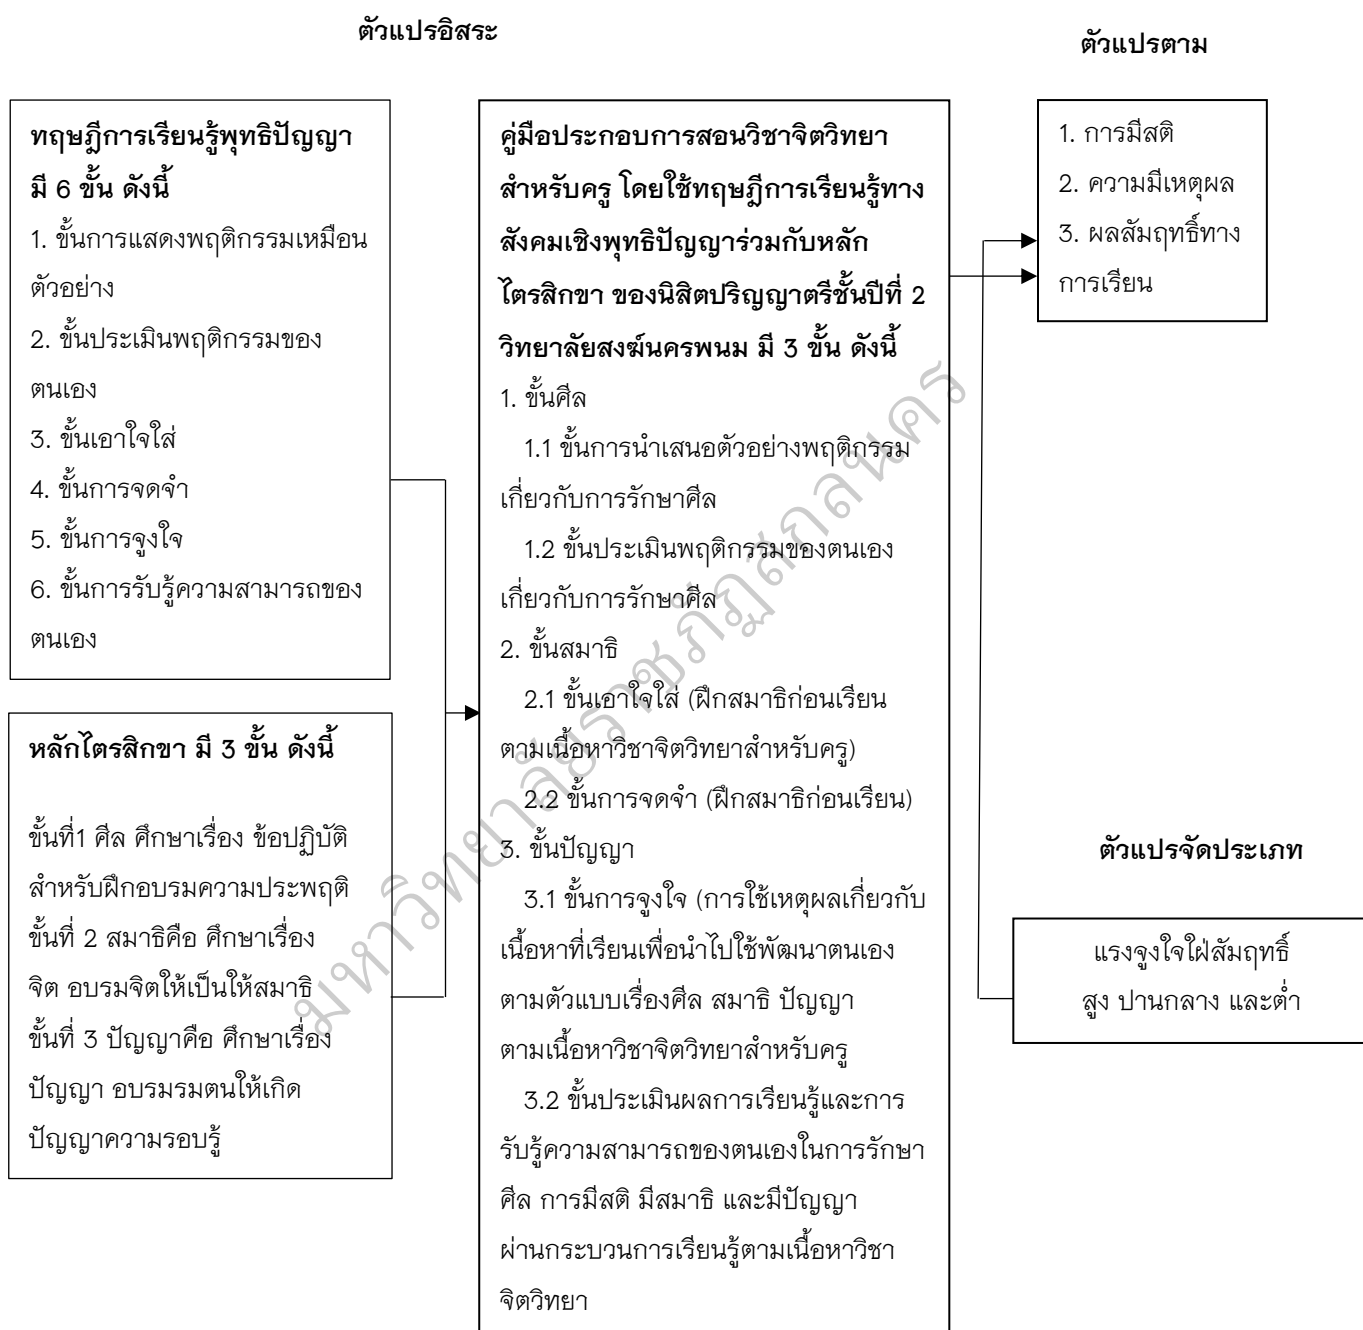 ตัวแปรอิสระ
ตัวแปรตาม
ทฤษฎีการเรียนรู้พุทธิปัญญา
มี 6 ขั้น ดังนี้
1. ขั้นการแสดงพฤติกรรมเหมือน
ตัวอย่าง
2. ขั้นประเมินพฤติกรรมของ
ตนเอง
3. ขั้นเอาใจใส่
4. ขั้นการจดจำ
5. ขั้นการจูงใจ
6. ขั้นการรับรู้ความสามารถของ
ตนเอง
หลักไตรสิกขา มี 3 ขั้น ดังนี้
ขั้นที่1 ศีล ศึกษาเรื่อง ข้อปฏิบัติ
สำหรับฝึกอบรมความประพฤติ
ขั้นที่ 2 สมาธิคือ ศึกษาเรื่อง
จิต อบรมจิตให้เป็นให้สมาธิ
ขั้นที่ 3 ปัญญาคือ ศึกษาเรื่อง
ปัญญา อบรมรมตนให้เกิด
ปัญญาความรอบรู้
คู่มือประกอบการสอนวิชาจิตวิทยา
สำหรับครู โดยใช้ทฤษฎีการเรียนรู้ทาง
สังคมเชิงพุทธิปัญญาร่วมกับหลัก
ไตรสิกขา ของนิสิตปริญญาตรีชั้นปีที่ 2
วิทยาลัยสงฆ์นครพนม มี 3 ขั้น ดังนี้
1. ขั้นศีล
1.1 ขั้นการนำเสนอตัวอย่างพฤติกรรม
เกี่ยวกับการรักษาศีล
1.2 ขั้นประเมินพฤติกรรมของตนเอง
เกี่ยวกับการรักษาศีล
2. ขั้นสมาธิ
2.1 ขั้นเอาใจใส่ (ฝึกสมาธิก่อนเรียน
ตามเนื้อหาวิชาจิตวิทยาสำหรับครู)
2.2 ขั้นการจดจำ (ฝึกสมาธิก่อนเรียน)
3. ขั้นปัญญา
3.1 ขั้นการจูงใจ (การใช้เหตุผลเกี่ยวกับ
เนื้อหาที่เรียนเพื่อนำไปใช้พัฒนาตนเอง
ตามตัวแบบเรื่องศีล สมาธิ ปัญญา
ตามเนื้อหาวิชาจิตวิทยาสำหรับครู
3.2 ขั้นประเมินผลการเรียนรู้และการ
รับรู้ความสามารถของตนเองในการรักษา
ศีล การมีสติ มีสมาธิ และมีปัญญา
ผ่านกระบวนการเรียนรู้ตามเนื้อหาวิชา
จิตวิทยา
1. การมีสติ
2. ความมีเหตุผล
3. ผลสัมฤทธิ์ทาง
การเรียน
ตัวแปรจัดประเภท
แรงจูงใจใฝ่สัมฤทธิ์
สูง ปานกลาง และต่ำ
มหาวิทยาลัยราชภัฏสกลนคร